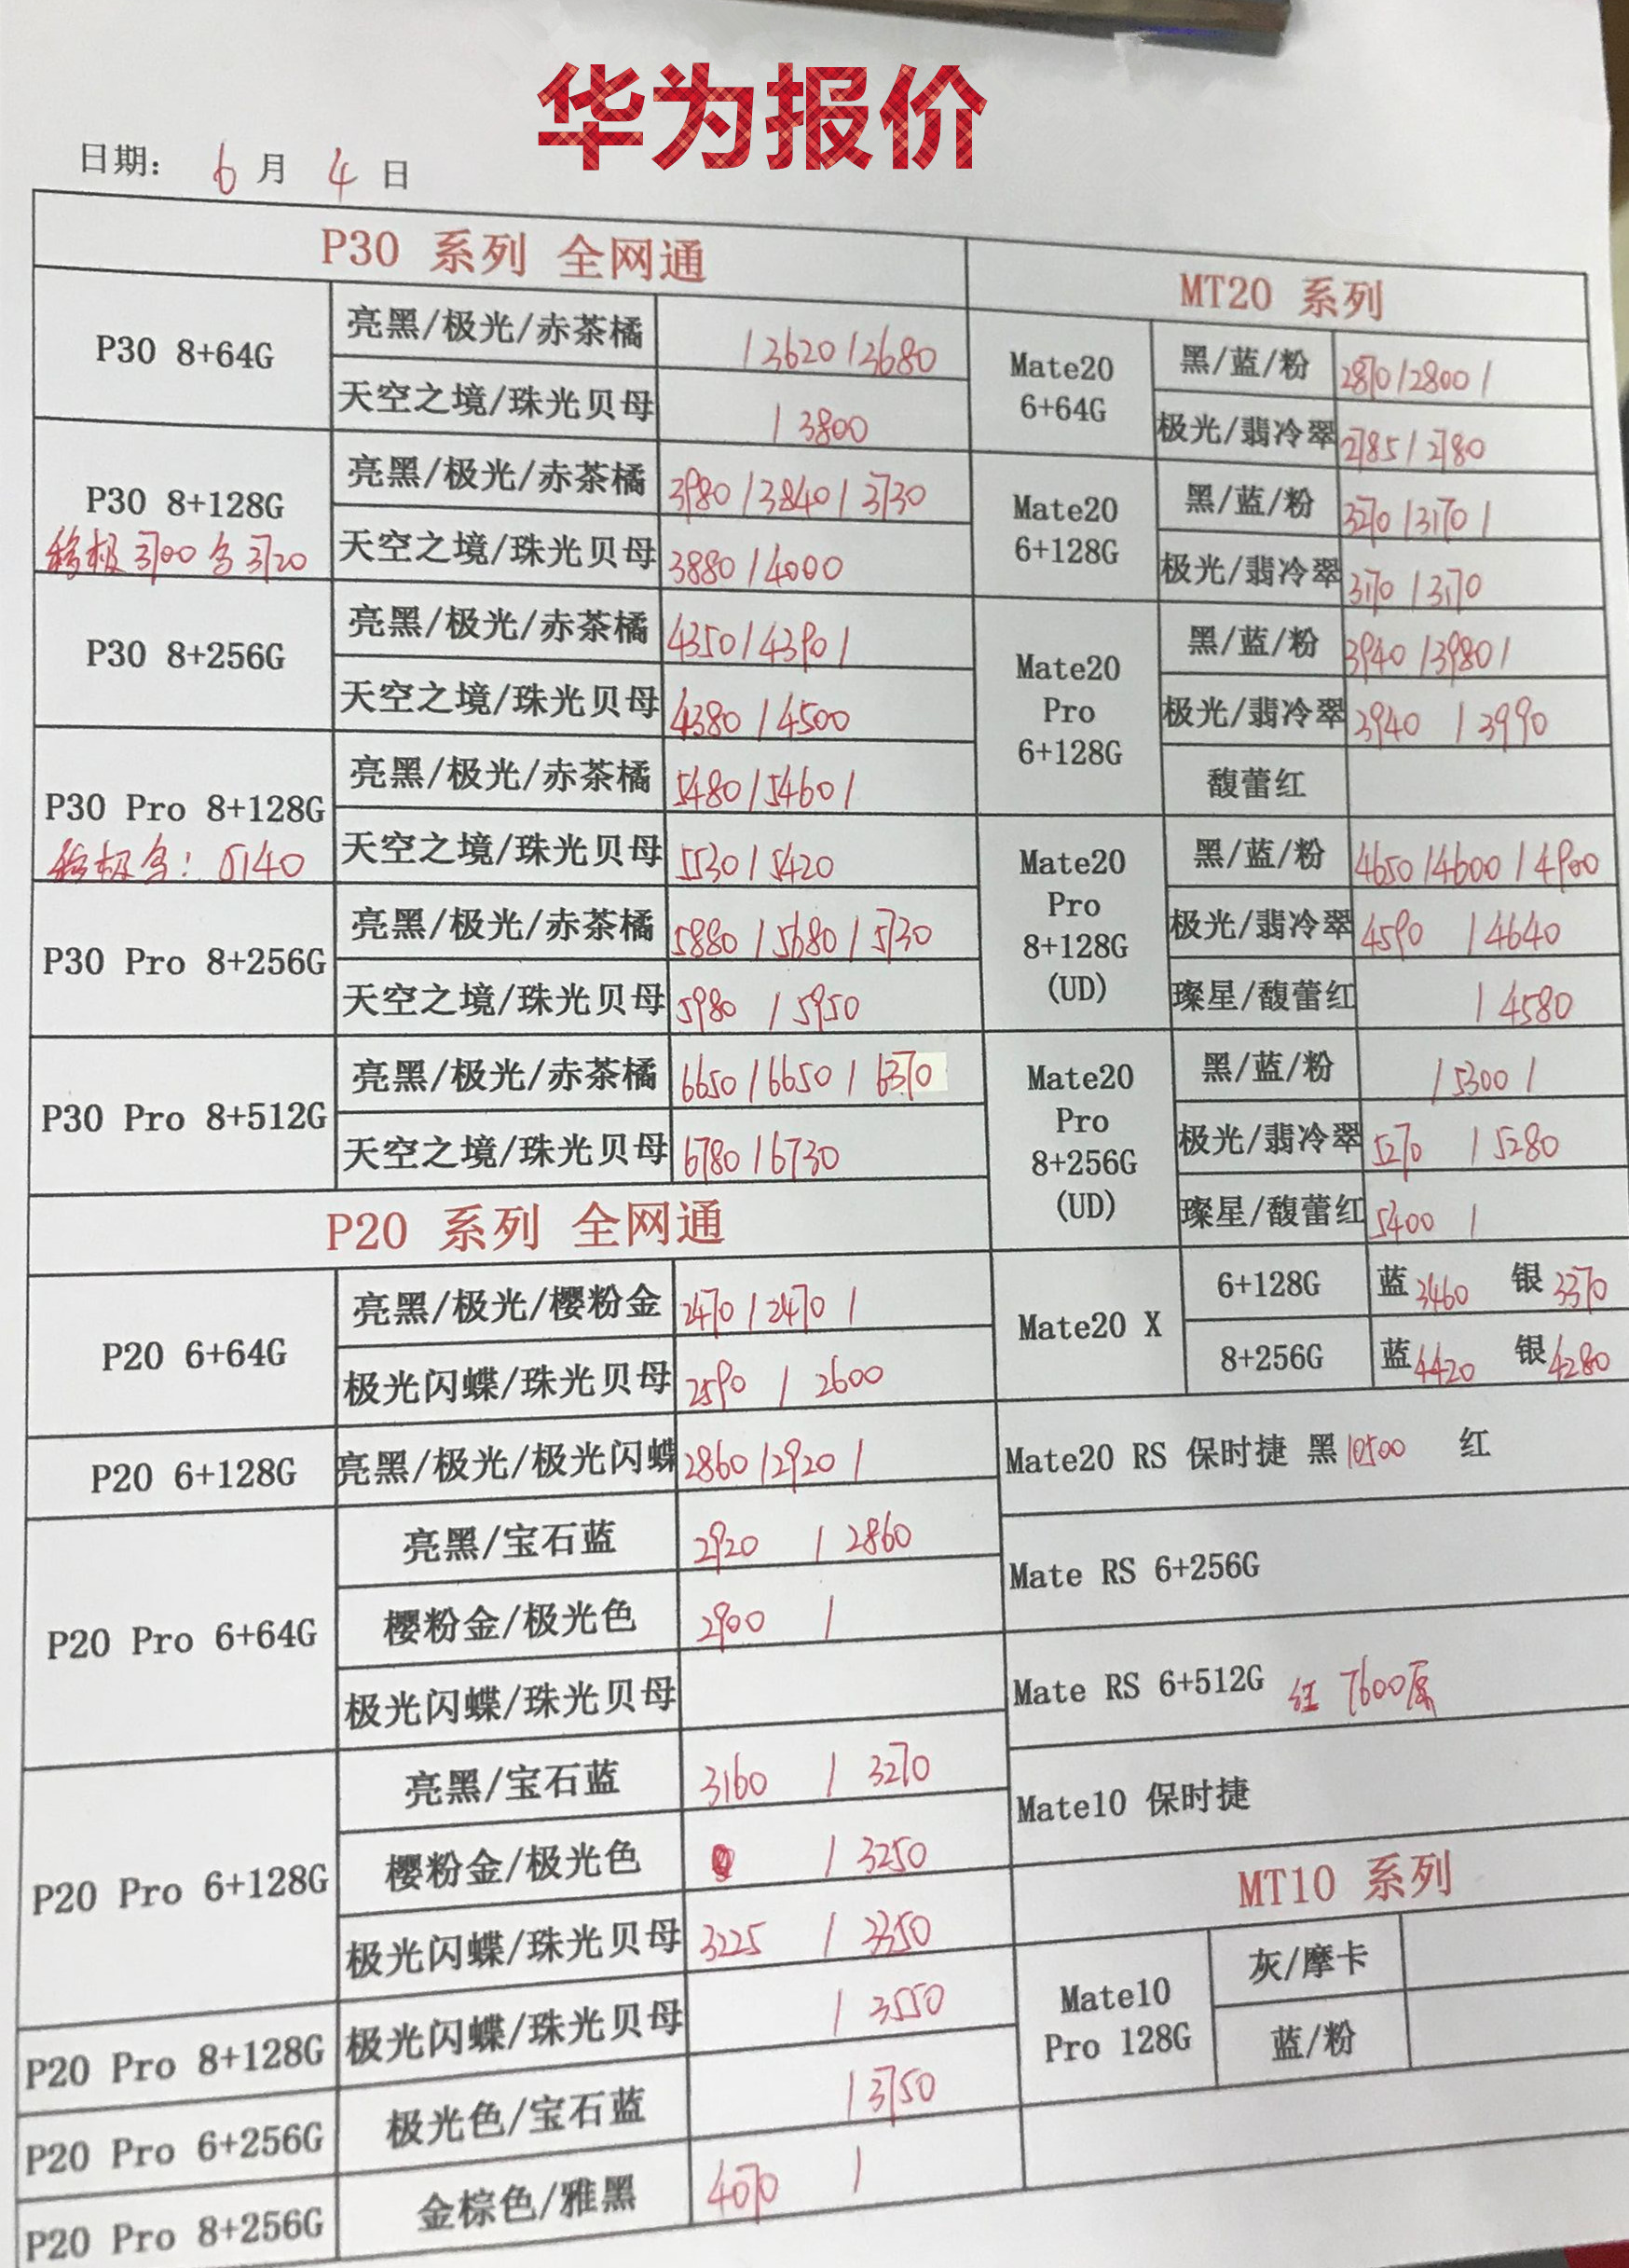 华为报价
日期: 6 月 4 日
P30 系列 全网通
P30 8+64G
亮黑/极光/赤茶橘 /3620/3680
天空之境/珠光贝母 /3800
P30 8+128G
移极3700 含3720
亮黑/极光/赤茶橘 3980/3840/3730
天空之境/珠光贝母 3880/4000
P30 8+256G
亮黑/极光/赤茶橘 4350/4390/
天空之境/珠光贝母 4380/4500
P30 Pro 8+128G
移极含: 5140
亮黑/极光/赤茶橘 5480/5460/
天空之境/珠光贝母 5530/5420
P30 Pro 8+256G
亮黑/极光/赤茶橘 5880/5680/5730
天空之境/珠光贝母 5980 /5950
P30 Pro 8+512G
亮黑/极光/赤茶橘 6650/6650/6370
天空之境/珠光贝母 6780/6730
P20 系列 全网通
P20 6+64G
亮黑/极光/樱粉金 2470/2470/
极光闪蝶/珠光贝母 2590 / 2600
P20 6+128G
亮黑/极光/极光闪蝶 2860/2920/
P20 Pro 6+64G
亮黑/宝石蓝 2920 / 2860
樱粉金/极光色 2900 /
极光闪蝶/珠光贝母
P20 Pro 6+128G
亮黑/宝石蓝 3160 / 3270
樱粉金/极光色 / 3250
极光闪蝶/珠光贝母 3225 / 3350
P20 Pro 8+128G
极光闪蝶/珠光贝母 / 3550
P20 Pro 6+256G
极光色/宝石蓝 /3750
P20 Pro 8+256G
金棕色/雅黑 4070 /
MT20 系列
Mate20
6+64G
黑/蓝/粉 2870/2800/
极光/翡冷翠 2785/2780
Mate20
6+128G
黑/蓝/粉 3270/3170/
极光/翡冷翠 3170/3170
Mate20
Pro
6+128G
黑/蓝/粉 3940/3980/
极光/翡冷翠 3940 /3990
馥蕾红
Mate20
Pro
8+128G
(UD)
黑/蓝/粉 4650/4600/4900
极光/翡冷翠 4590 /4640
璨星/馥蕾红 /4580
Mate20
Pro
8+256G
(UD)
黑/蓝/粉 /5300/
极光/翡冷翠 5270 /5280
璨星/馥蕾红 5400 /
Mate20 X
6+128G 蓝3460 银3370
8+256G 蓝4420 银4280
Mate20 RS 保时捷 黑10500 红
Mate RS 6+256G
Mate RS 6+512G 红 7600原
Mate10 保时捷
MT10 系列
Mate10
Pro 128G
灰/摩卡
蓝/粉